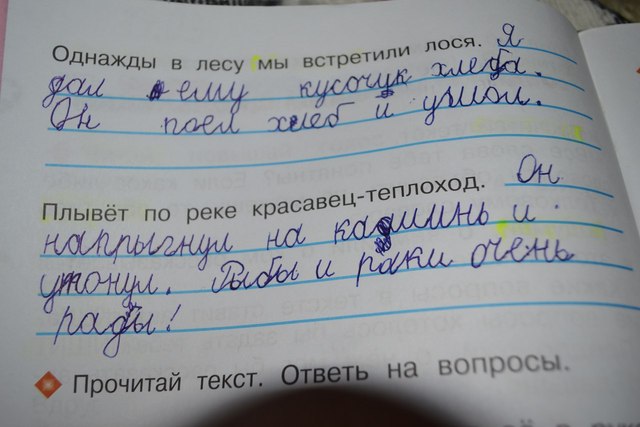 Однажды в лесу мы встретили лося. Я
дал ему кусочук хлеба.
Он поел хлеб и ушол.
Плывёт по реке красавец-теплоход. Он
напрыгнул на камминь и
утонул. Рыбы и раки очень
рады!
Прочитай текст. Ответь на вопросы.